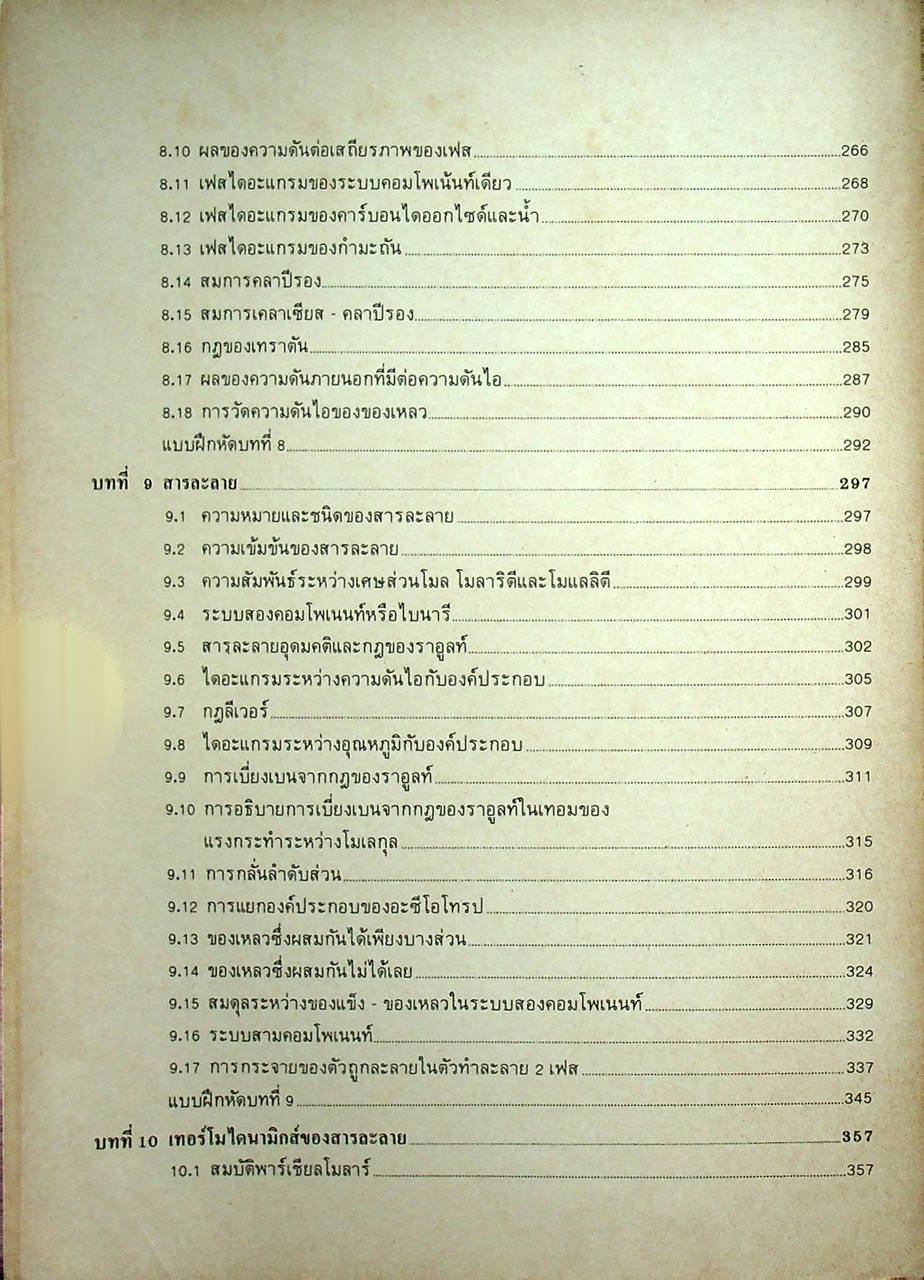 8.10 ผลของความดันต่อเสถียรภาพของเฟส 266
8.11 เฟสไดอะแกรมของระบบคอมโพเน้นท์เดียว 268
8.12 เฟสไดอะแกรมของคาร์บอนไดออกไซด์และน้ำ 270
8.13 เฟสไดอะแกรมของกำมะถัน 273
8.14 สมการคลาปีรอง 275
8.15 สมการเคลาเซียส - คลาปีรอง 279
8.16 กฎของเทราตัน 285
8.17 ผลของความดันภายนอกที่มีต่อความดันไอ 287
8.18 การวัดความดันไอของของเหลว 290
แบบฝึกหัดบทที่ 8 292
บทที่ 9 สารละลาย 297
9.1 ความหมายและชนิดของสารละลาย 297
9.2 ความเข้มข้นของสารละลาย 298
9.3 ความสัมพันธ์ระหว่างเศษส่วนโมล โมลาริตีและโมแลลิตี 299
9.4 ระบบสองคอมโพเนนท์หรือไบนารี 301
9.5 สารละลายอุดมคติและกฎของราอูลท์ 302
9.6 ไดอะแกรมระหว่างความดันไอกับองค์ประกอบ 305
9.7 กฎลีเวอร์ 307
9.8 ไดอะแกรมระหว่างอุณหภูมิกับองค์ประกอบ 309
9.9 การเบี่ยงเบนจากกฎของราอูลท์ 311
9.10 การอธิบายการเบี่ยงเบนจากกฎของราอูลท์ในเทอมของ
แรงกระทำระหว่างโมเลกุล 315
9.11 การกลั่นลำดับส่วน 316
9.12 การแยกองค์ประกอบของอะซีโอโทรป 320
9.13 ของเหลวซึ่งผสมกันได้เพียงบางส่วน 321
9.14 ของเหลวซึ่งผสมกันไม่ได้เลย 324
9.15 สมดุลระหว่างของแข็ง - ของเหลวในระบบสองคอมโพเนนท์ 329
9.16 ระบบสามคอมโพเนนท์ 332
9.17 การกระจายของตัวถูกละลายในตัวทำละลาย 2 เฟส 337
แบบฝึกหัดบทที่ 9 345
บทที่ 10 เทอร์โมไดนามิกส์ของสารละลาย 357
10.1 สมบัติพาร์เชียลโมลาร์ 357